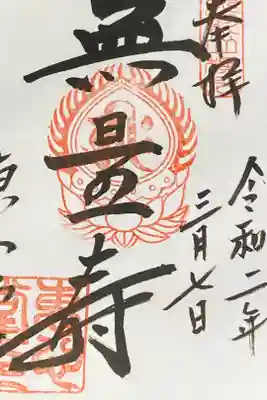 奉拝
令和二年
三月七日
無量寿